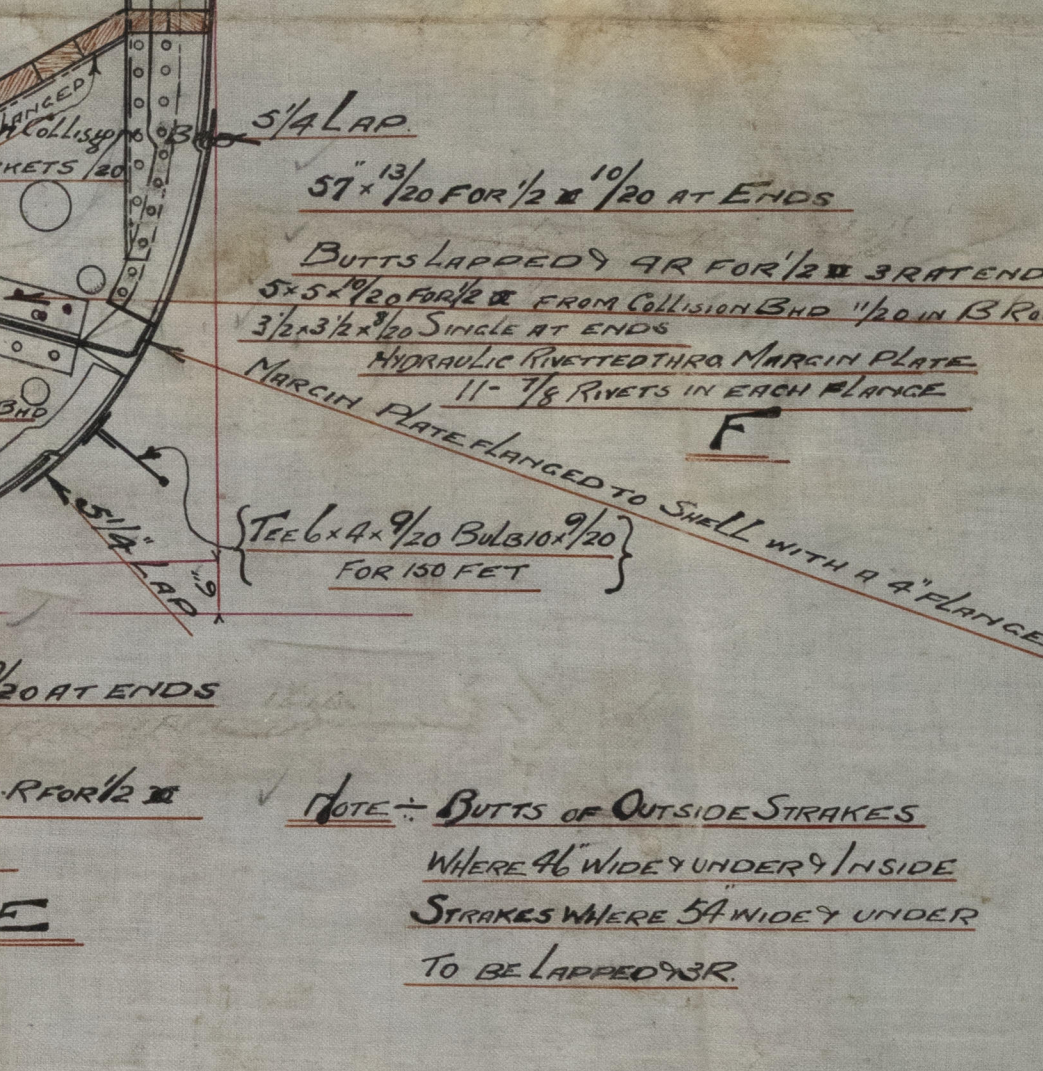 5 1/4 LAP.
57" × 13/20 FOR 1/2 ⅏ 10/20 AT ENDS
BUTTS LAPPED & 4R FOR 1/2 ⅏ 3R AT END
5×5×10/20 FOR 1/2 ⅏ FROM COLLISION BHD 11/20 IN B RO
3 1/2×3 1/2×8/20 SINGLE AT ENDS
HYDRAULIC RIVETTED THRO MARGIN PLATE
11- 7/8 RIVETS IN EACH FLANGE
F
MARGIN PLATE FLANGED TO SHELL WITH A 4" FLANGE
LANGED
COLLISION B
KETS /20
BHD
5 1/4" LAP
6"
{TEE 6×4×9/20 BULB 10×9/20}
FOR 150 FEET
/20 AT ENDS
R FOR 1/2 ⅏
E
NOTE ÷ BUTTS OF OUTSIDE STRAKES
WHERE 46" WIDE & UNDER & INSIDE
STRAKES WHERE 54" WIDE & UNDER
TO BE LAPPED & 3R.